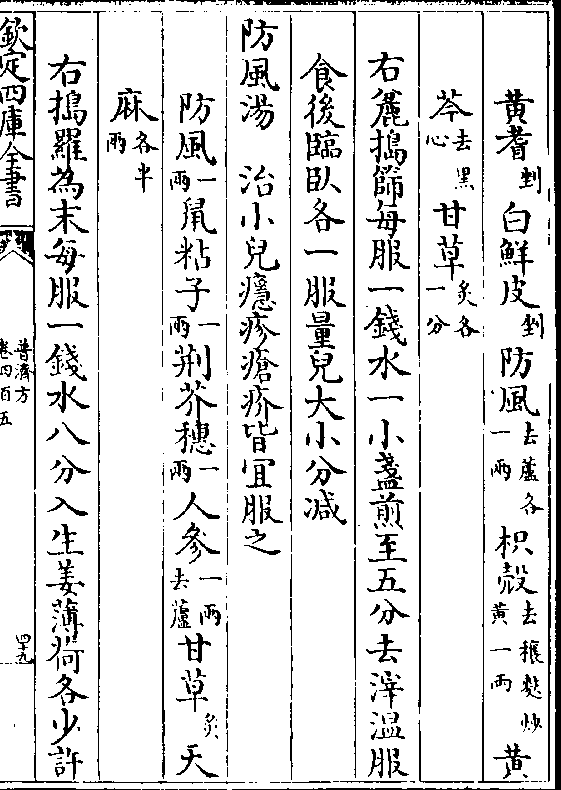 黄耆剉白鮮皮剉防風去蘆各一兩枳殻去穰麩炒黄一兩黄
芩去黒心甘草炙各一分
右麄搗篩每服一錢水一小盞煎至五分去滓温服
食後臨臥各一服量兒大小分減
防風湯 治小兒癮疹瘡疥皆宜服之
防風一兩鼠粘子一兩荆芥穗一兩人參一兩去蘆甘草炙天
麻各半兩
右搗羅為末每服一錢水八分入生姜薄荷各少許
欽定四庫全書
普濟方
卷四百五
四十九